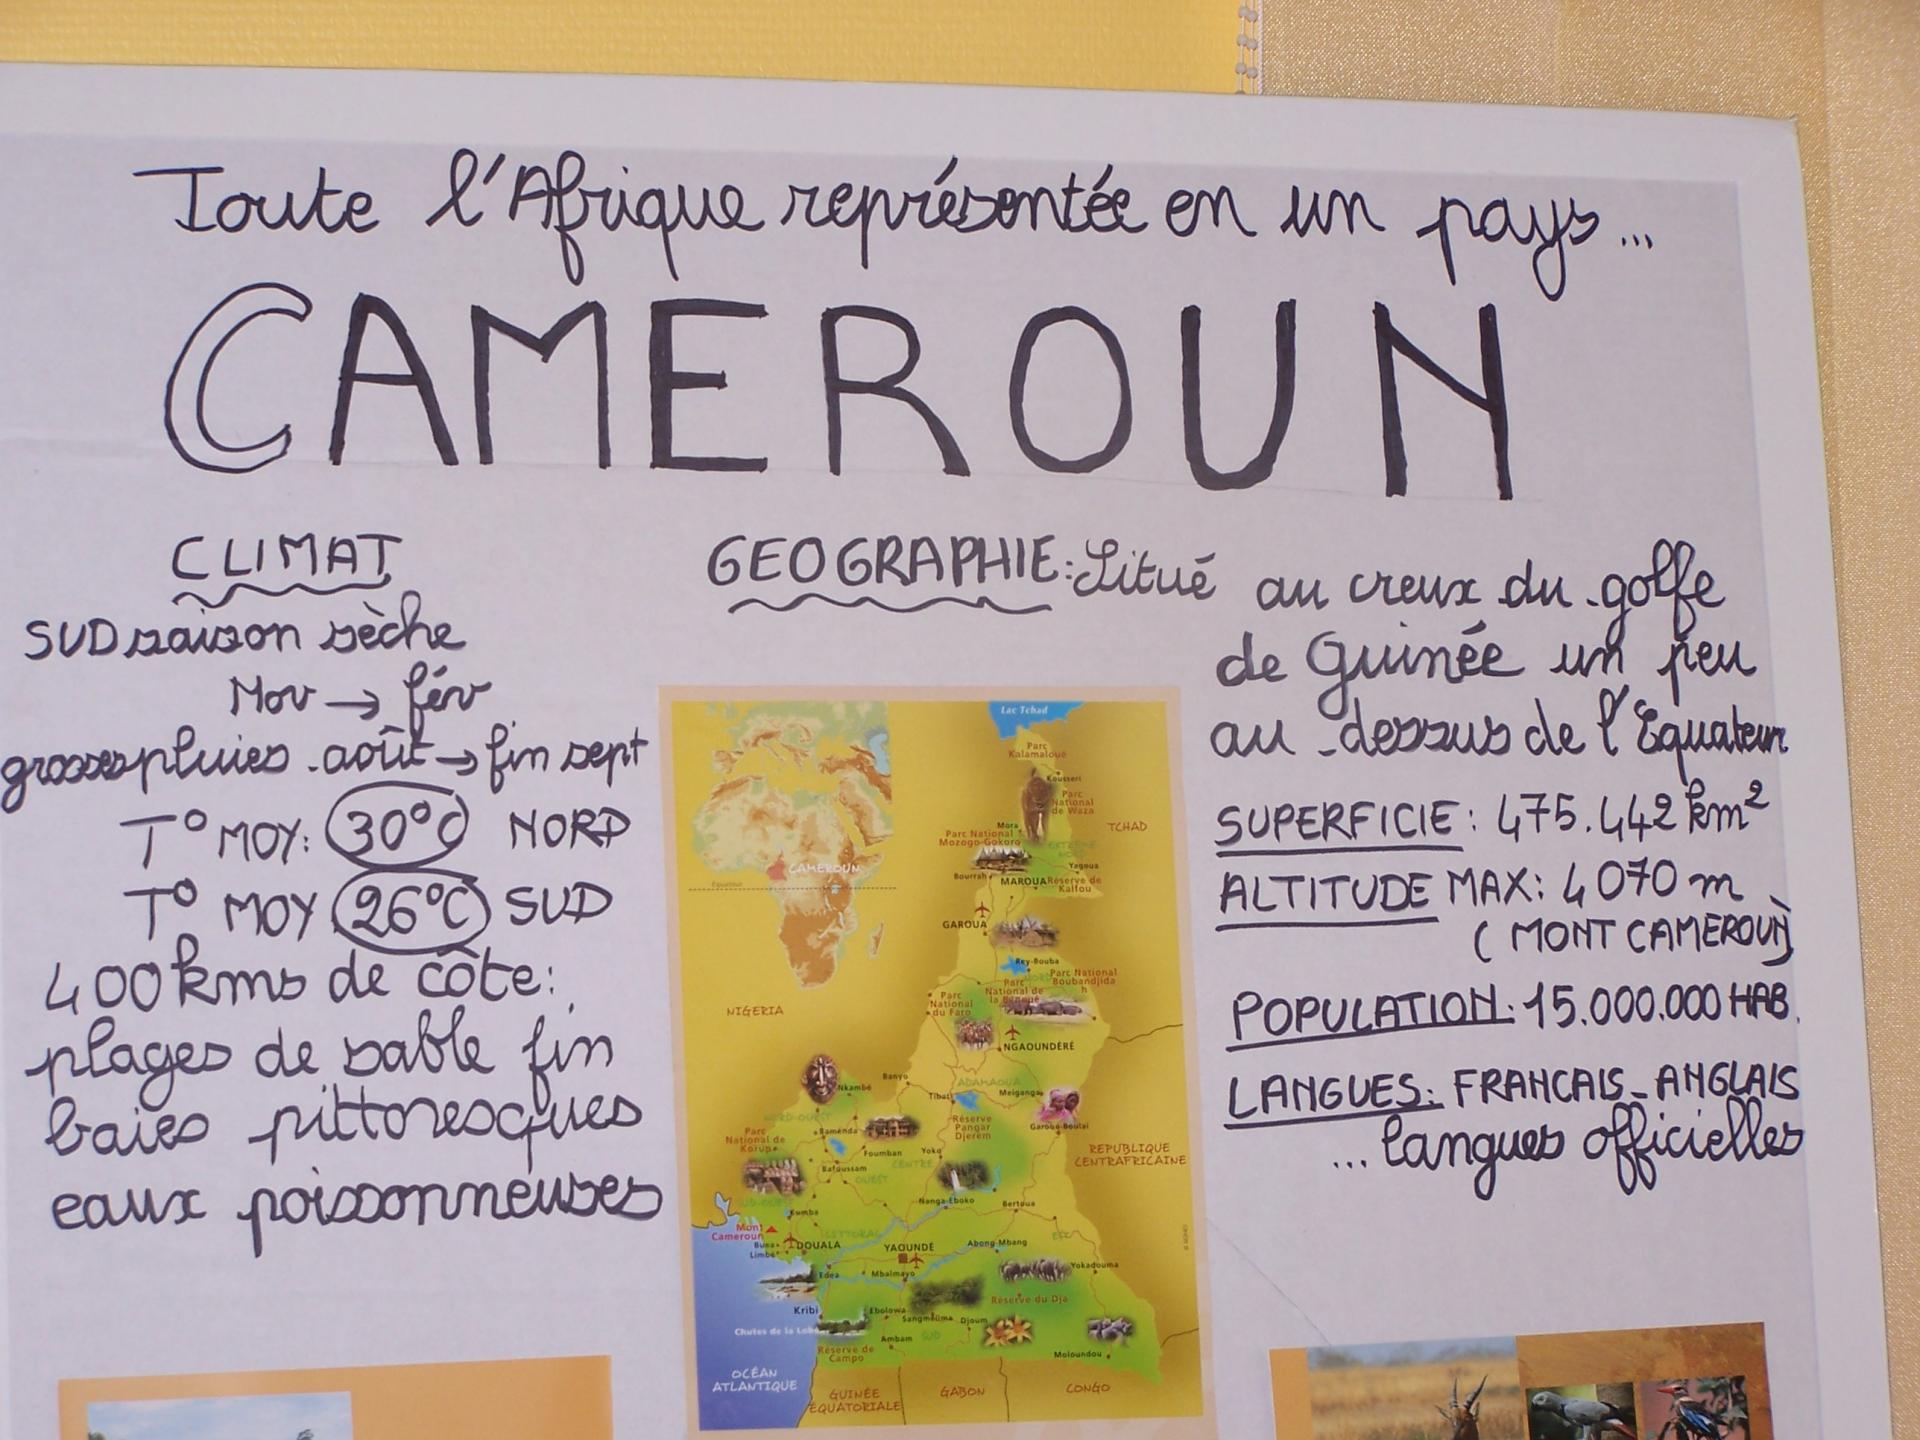 Toute l'Afrique représentée en un pays...
CAMEROUN
CLIMAT
SUD saison sèche
Nov → fév
grosses pluies août → fin sept
T° MOY: 30°C NORD
T° MOY 26°C SUD
400 kms de côte:
plages de sable fin
baies pittoresques
eaux poissonneuses
GEOGRAPHIE: Situé au creux du golfe
de Guinée un peu
au-dessus de l'Equateur
SUPERFICIE: 475.442 km²
ALTITUDE MAX: 4070 m
(MONT CAMEROUN)
POPULATION: 15.000.000 HAB.
LANGUES: FRANCAIS_ANGLAIS
... langues officielles
Lac Tchad
Parc
Kalamaloué
Kousseri
Parc
National
de Waza
TCHAD
Mora
Parc National
Mozogo-Gokoro
EXTRÊME
NORD
Yagoua
Bourrah
MAROUA
Réserve de
Kalfou
CAMEROUN
Equateur
GAROUA
Rey-Bouba
NORD
Parc National
Boubandjida
h
Parc
National de
la Bénoué
Parc
National
du Faro
NIGERIA
NGAOUNDÉRÉ
Banyo
Nkambé
ADAMAOUA
Tibati
Meiganga
NORD-OUEST
Réserve
Pangar
Djerem
Garoua-Boulai
Bamenda
Parc
National de
Korup
Foumban
Yoko
REPUBLIQUE
CENTRAFRICAINE
Bafoussam
CENTRE
OUEST
SUD-OUEST
Nanga-Eboko
Bertoua
Kumba
Mont
Cameroun
LITTORAL
EST
Buea
Limbé
DOUALA
YAOUNDÉ
Abong-Mbang
Edea
Mbalmayo
Yokadouma
Kribi
Ebolowa
Réserve du Dja
Sangmélima
Djoum
Chutes de la Lobé
Ambam
SUD
Réserve de
Campo
Moloundou
OCÉAN
ATLANTIQUE
GUINÉE
ÉQUATORIALE
GABON
CONGO